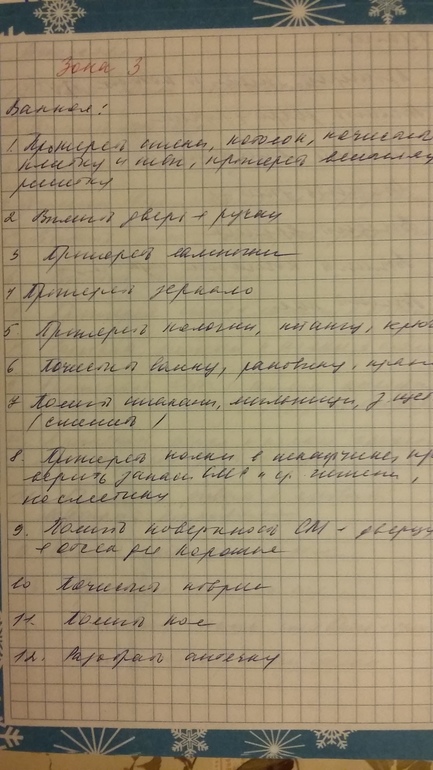 Зона 3
Ванная:
1. Протереть стены, потолок, почистить
плитку и швы, протереть вентиляц
решетку
2 Вымыть дверь + ручки
3 Протереть лампочки
4 Протереть зеркало
5 Протереть полочки, штангу, крюч
6 Почистить ванну, раковину, кран
7 Помыть стаканы, мыльницы, з. щет
(сменить)
8. Протереть полки в пенальчике, про
верить запасы БМП и ср. гигиены,
косметику
9. Помыть поверхность СМ + дверцу
+ отсек для порошка
10 Почистить коврик
11. Помыть пол
12. Разобрать аптечку